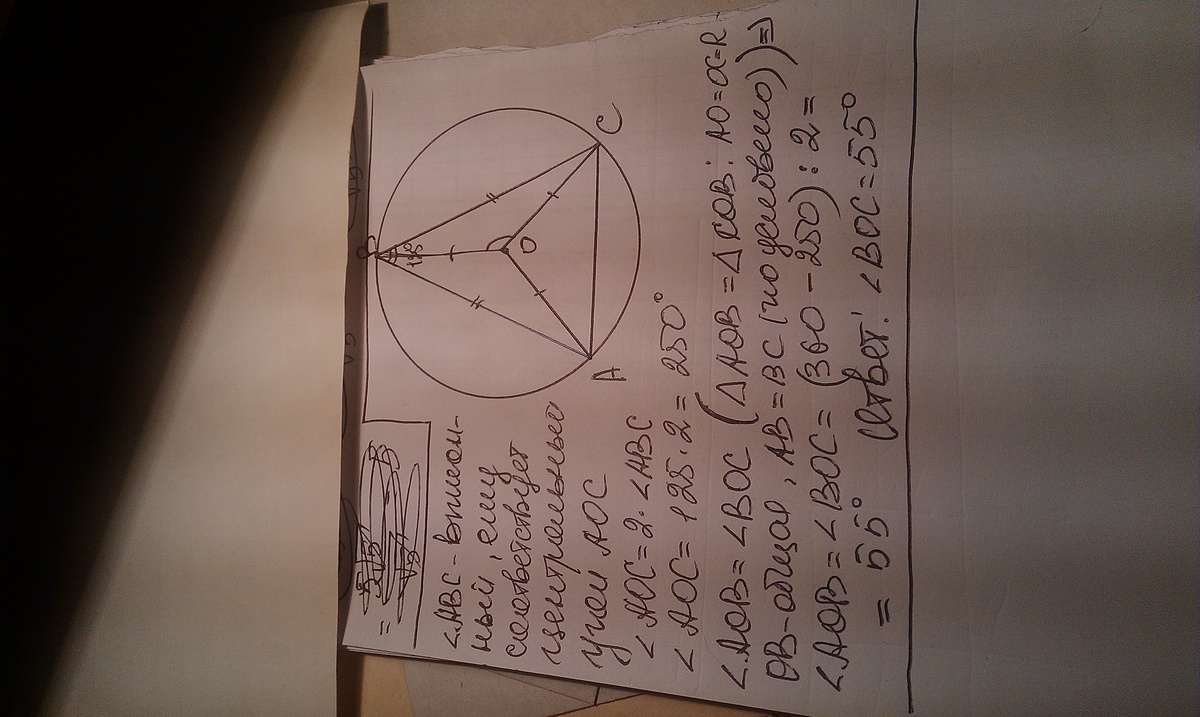 B
125°
O
A
C
=
∠ABC - вписан-
ный, ему
соответствует
центральный
угол AOC
∠AOC = 2 · ∠ABC
∠AOC = 125 · 2 = 250°
∠AOB = ∠BOC (△AOB = △COB: AO=OC=R
OB-общая, AB=BC (по условию)) ⇒
∠AOB = ∠BOC = (360 - 250) : 2 =
= 55° Ответ: ∠BOC = 55°